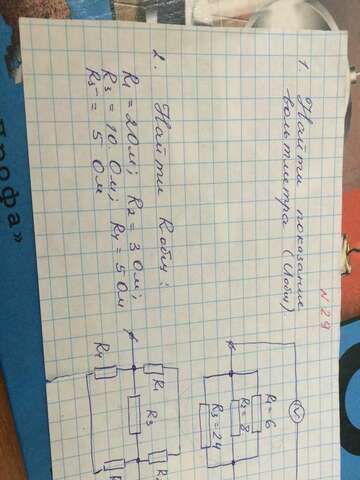 N 29
1. Найти показание
вольтметра (Uобщ)
R1 = 6
R2 = 8
R3 = 24
V
2. Найти Rобщ:
R1 = 2 Ом; R2 = 3 Ом;
R3 = 10 Ом; R4 = 5 Ом
R5 = 5 Ом
R1
R3
R4
профа»